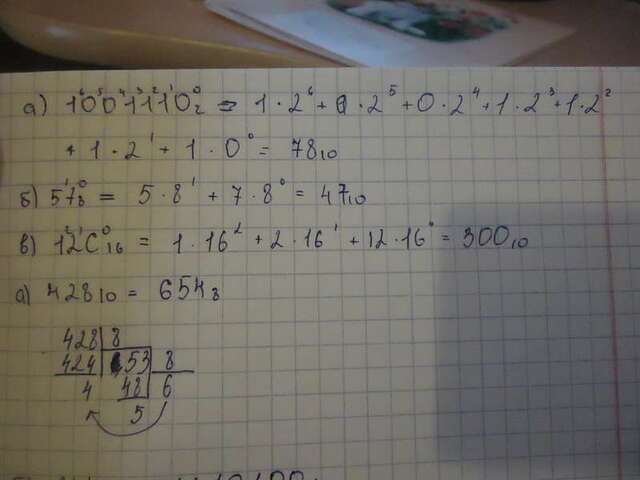 а) 1⁶0⁵0⁴1³1²1¹0⁰₂ = 1·2⁶+0·2⁵+0·2⁴+1·2³+1·2²
+1·2¹+1·0⁰= 78₁₀
б) 5¹7⁰₈ = 5·8¹+7·8⁰= 47₁₀
в) 1²2¹C⁰₁₆ = 1·16²+2·16¹+12·16⁰=300₁₀
а) 428₁₀ = 654₈
428 8
424 53 8
4 48 6
5